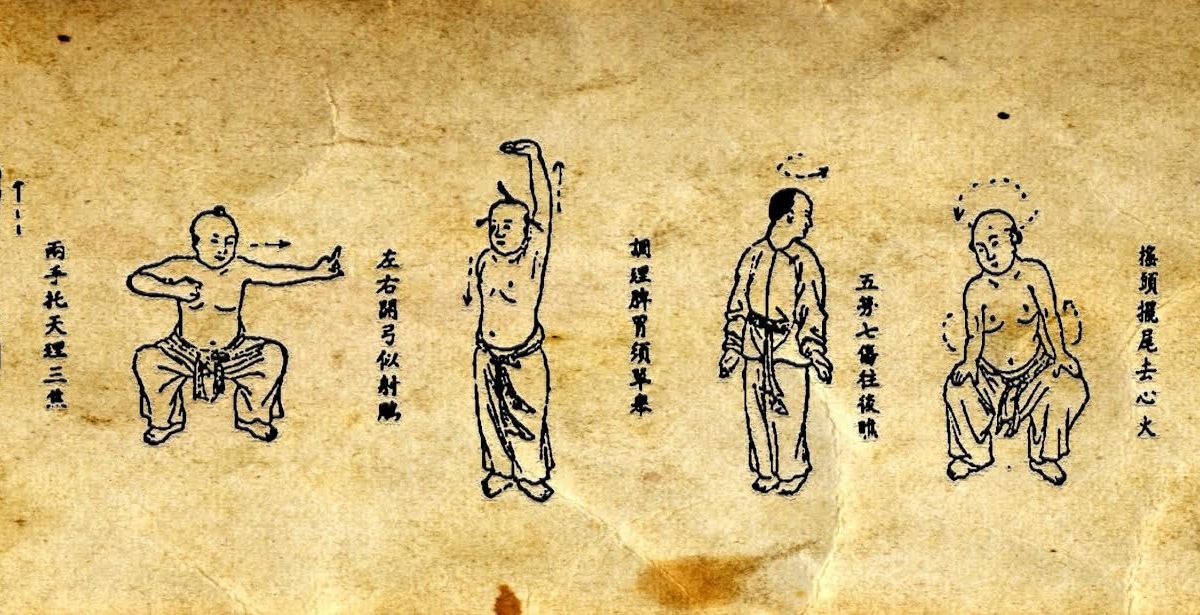 兩手托天理三焦
左右開弓似射鵰
調理脾胃須單舉
五勞七傷往後瞧
搖頭擺尾去心火